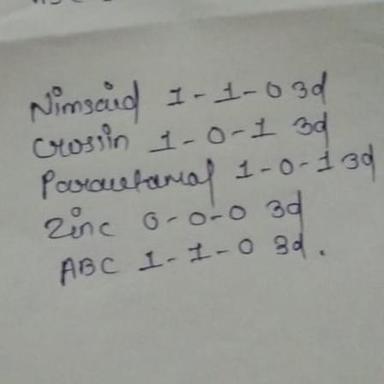 Nimsaid 1-1-0 3d
Crossin 1-0-1 3d
Paracetamal 1-0-1 3d
Zinc 0-0-0 3d
ABC 1-1-0 3d.